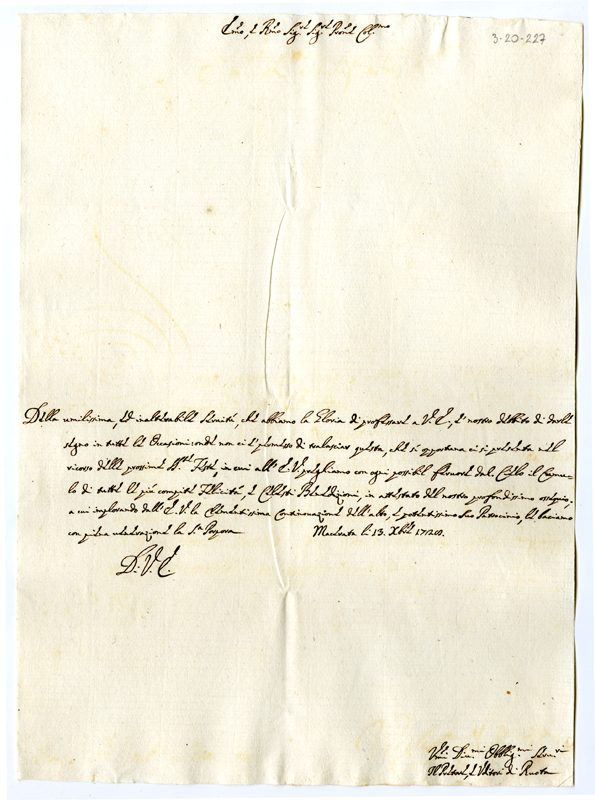 Emo, e Rmo Sig.r Sig.r Prone Col.mo
3-20-227
Della umilissima, ed inalterabile servitù, che abbiamo la Gloria di professare a V.E., è nostro debito di darle
segno in tutte le Occasioni: onde non ci è permesso di tralasciar questa, che sì opportuna ci si presenta nel
ricorso delle prossime S.te Feste, in cui all' E.V. preghiamo con ogni possibil fervore dal Cielo il Cumu-
lo di tutte le più compite Felicità, e Celesti Benedizioni, in attestato del nostro profondissimo ossequio,
a cui implorando dall' E.V. la Clementissima Continuazione dell' alto, e potentissimo Suo Patrocinio, le baciamo
con piena venerazione la S.ra Porpora Macerata li 13. Xbre
D. V. E.
Vmi Div.mi Obblig.mi Serv.ri
Il Preside, e Uditori di Ruota